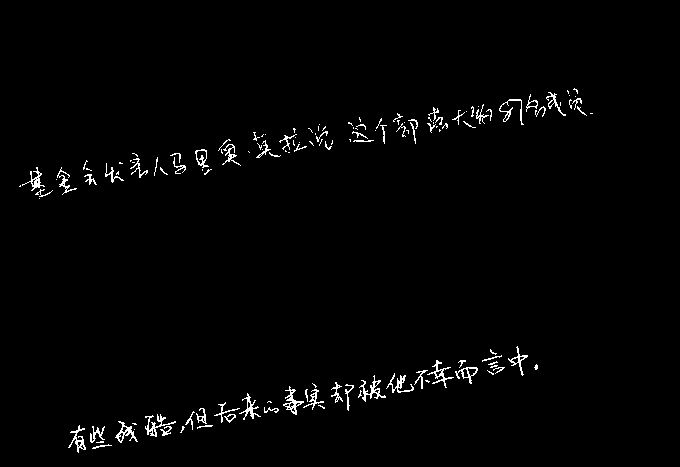 基金会发言人马里奥·莫拉说,这个部落大约87名成员.
有些残酷,但后来的事实却被他不幸而言中。